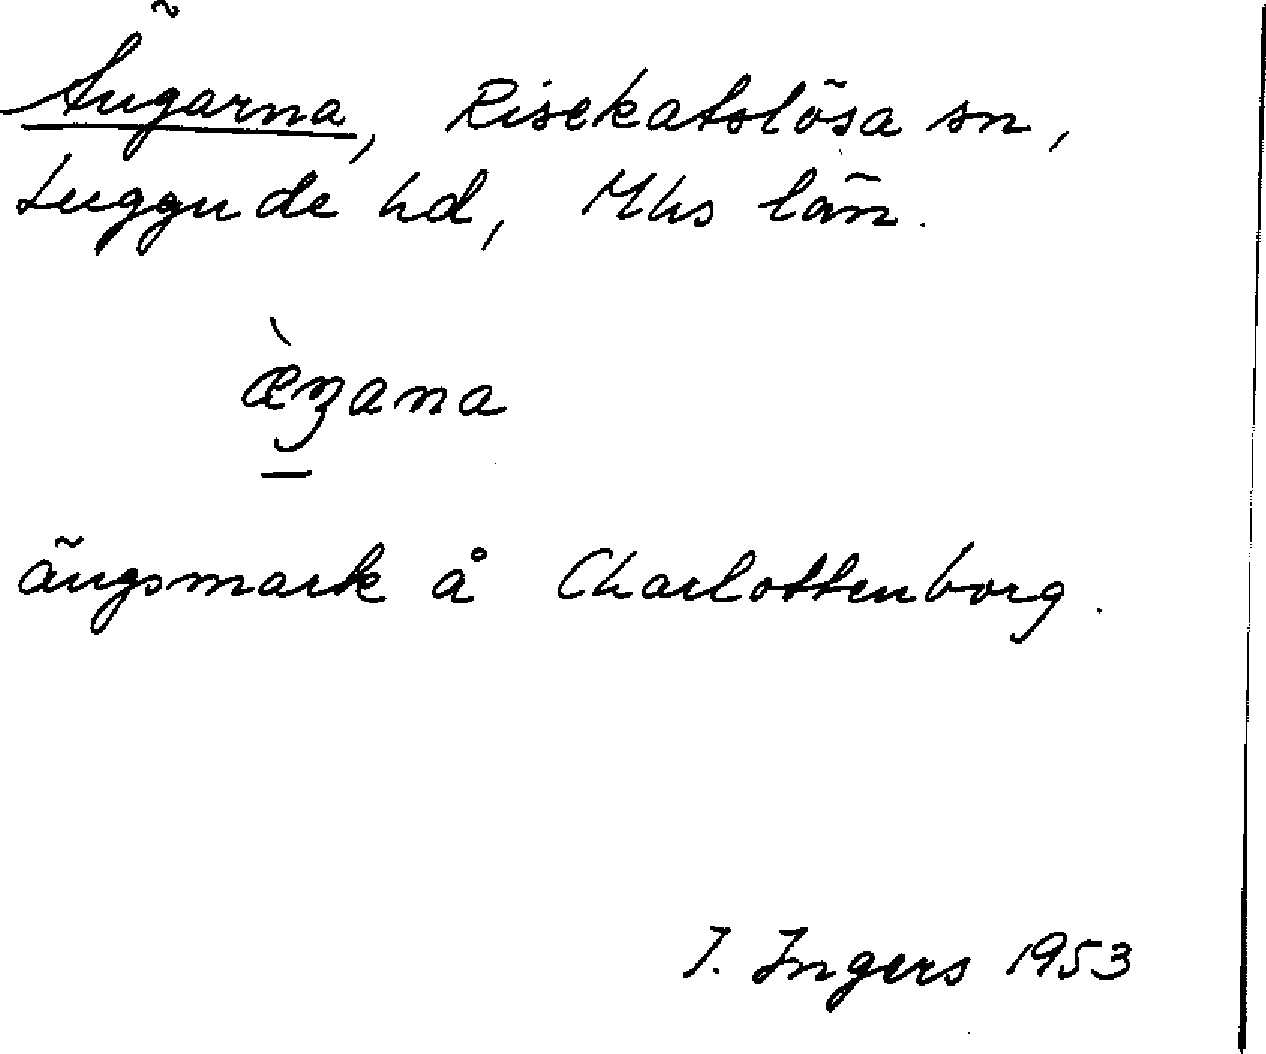 Ängarna, Risekatslösa sn,
Luggude hd, Mhs län.
æ̀ŋana
ängsmark å Charlottenborg.
I. Ingers 1953